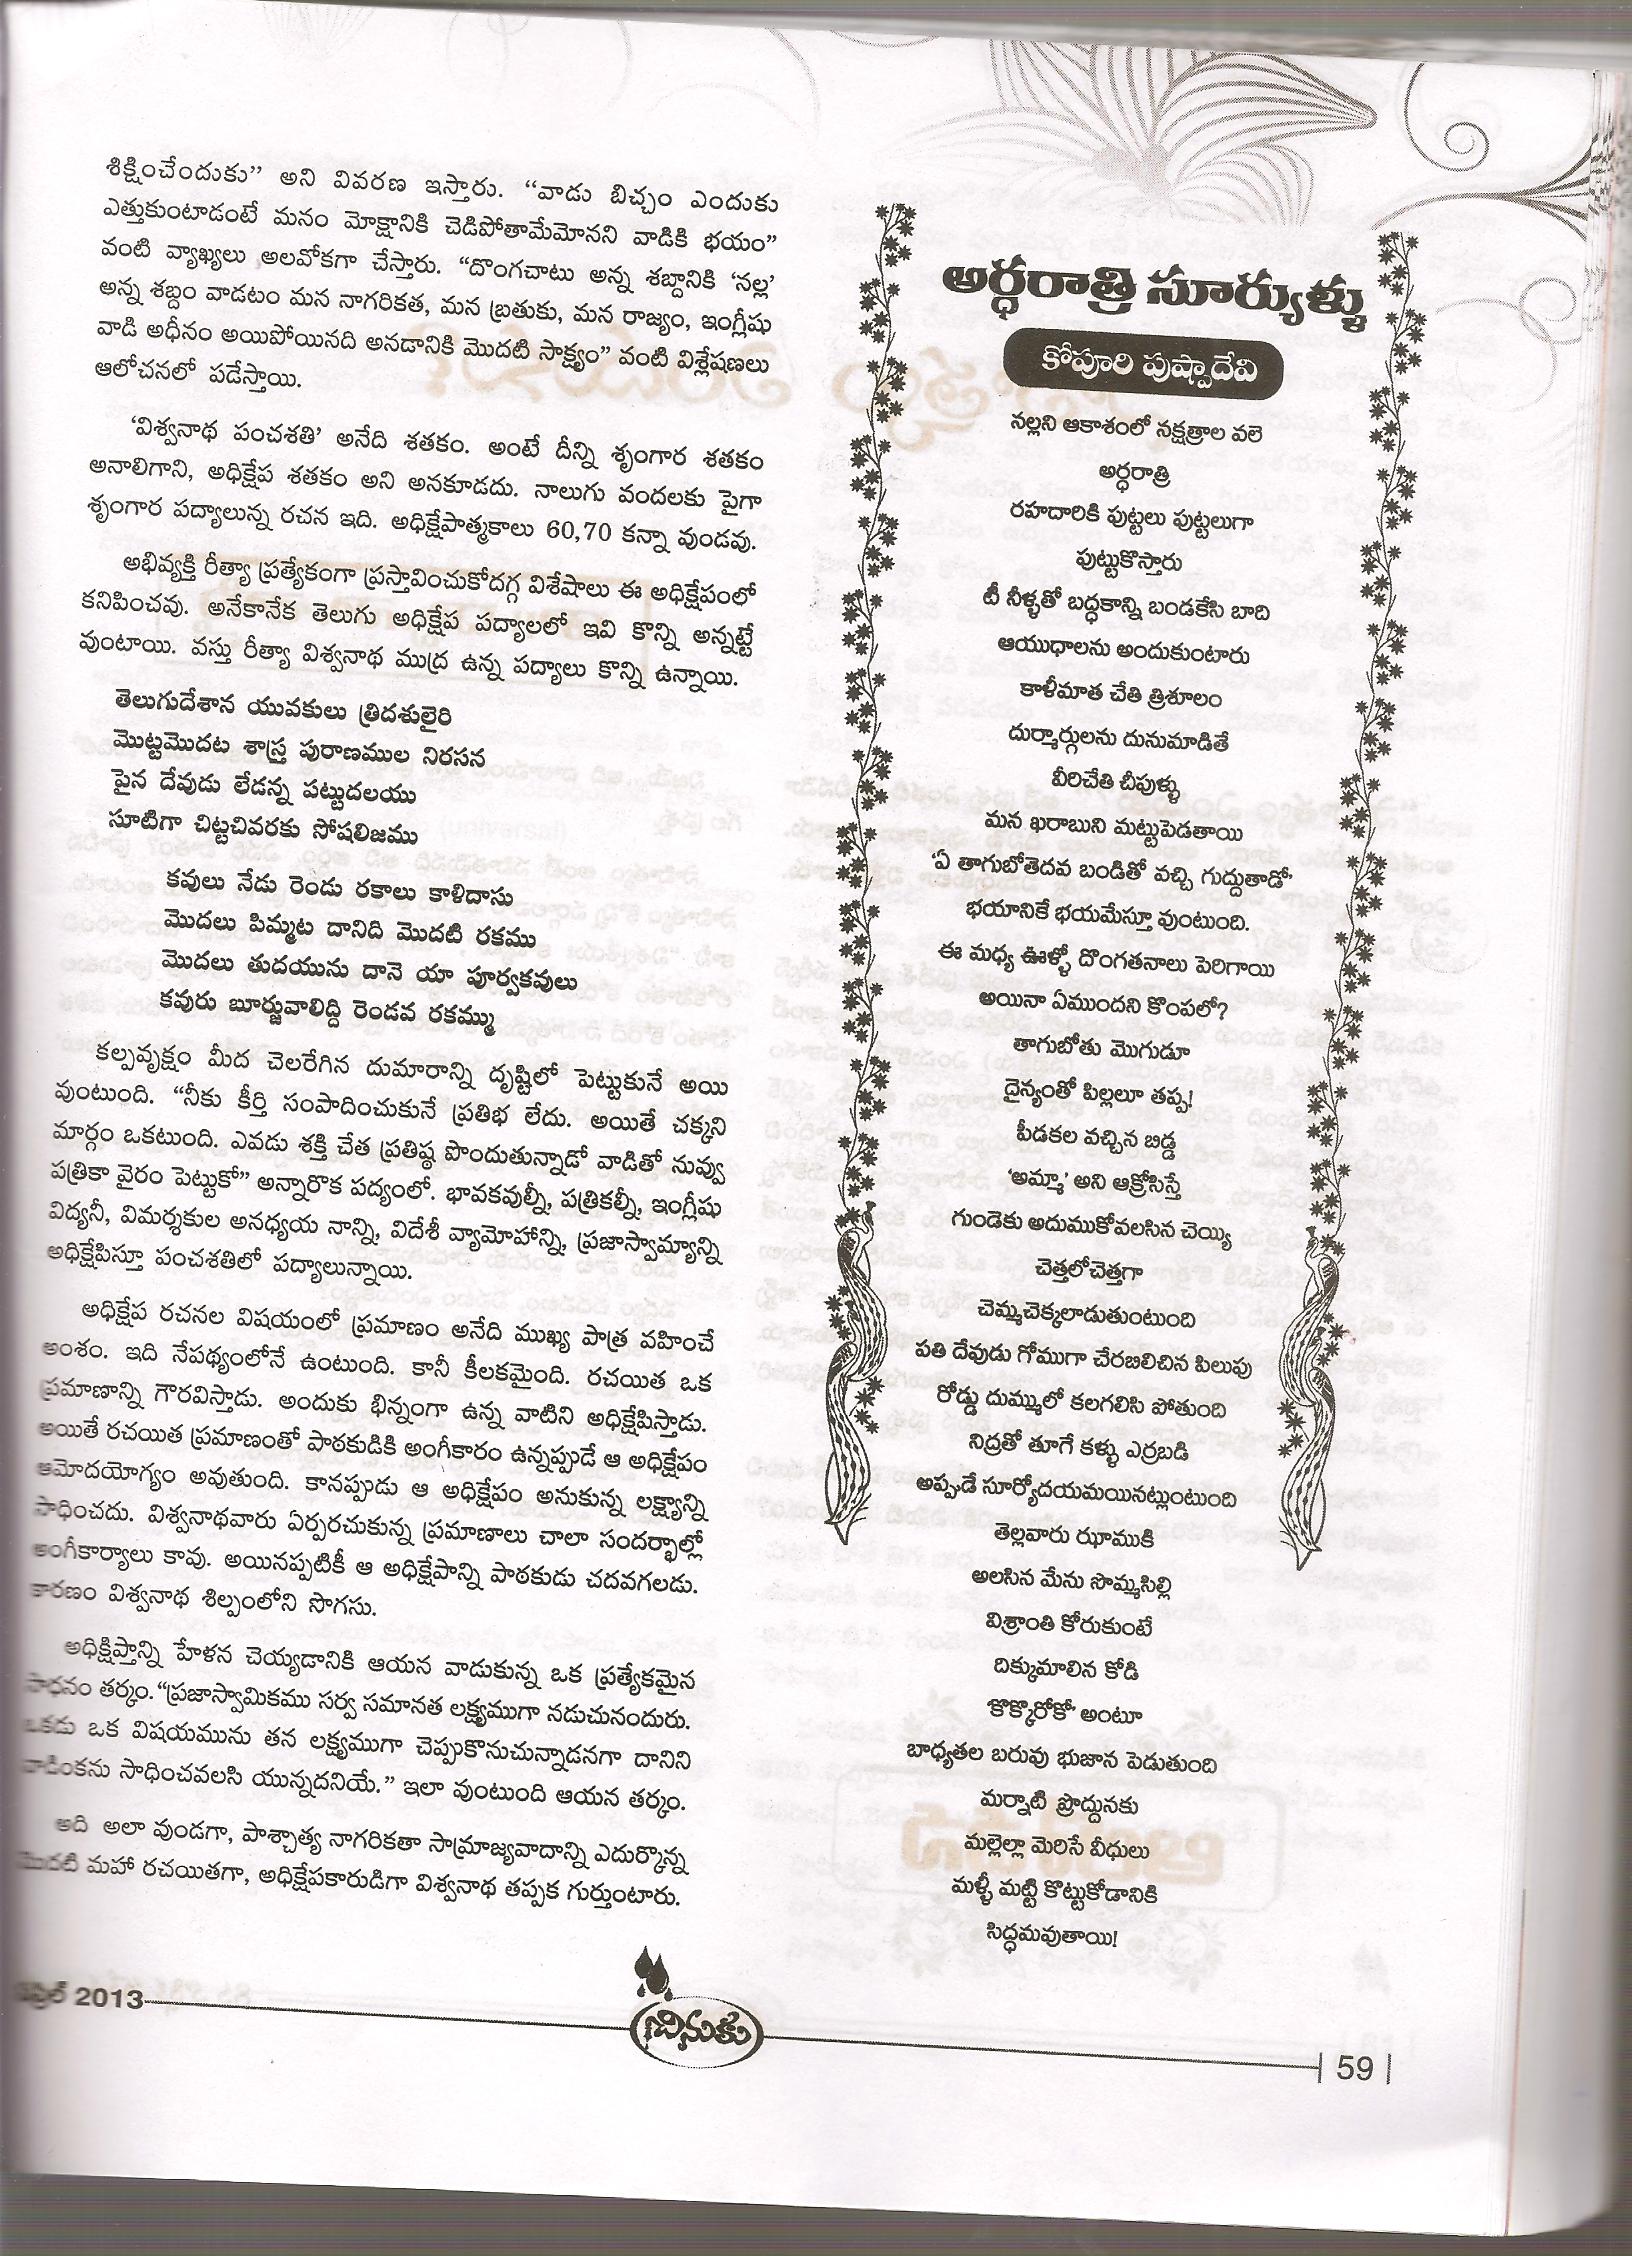 శిక్షించేందుకు” అని వివరణ ఇస్తారు. “వాడు బిచ్చం ఎందుకు
ఎత్తుకుంటాడంటే మనం మోక్షానికి చెడిపోతామేమోనని వాడికి భయం”
వంటి వ్యాఖ్యలు అలవోకగా చేస్తారు. “దొంగచాటు అన్న శబ్దానికి ‘నల్ల’
అన్న శబ్దం వాడటం మన నాగరికత, మన బ్రతుకు, మన రాజ్యం, ఇంగ్లీషు
వాడి అధీనం అయిపోయినది అనడానికి మొదటి సాక్ష్యం” వంటి విశ్లేషణలు
ఆలోచనలో పడేస్తాయి.
‘విశ్వనాథ పంచశతి’ అనేది శతకం. అంటే దీన్ని శృంగార శతకం
అనాలిగాని, అధిక్షేప శతకం అని అనకూడదు. నాలుగు వందలకు పైగా
శృంగార పద్యాలున్న రచన ఇది. అధిక్షేపాత్మకాలు 60,70 కన్నా వుండవు.
అభివ్యక్తి రీత్యా ప్రత్యేకంగా ప్రస్తావించుకోదగ్గ విశేషాలు ఈ అధిక్షేపంలో
కనిపించవు. అనేకానేక తెలుగు అధిక్షేప పద్యాలలో ఇవి కొన్ని అన్నట్టే
వుంటాయి. వస్తు రీత్యా విశ్వనాథ ముద్ర ఉన్న పద్యాలు కొన్ని ఉన్నాయి.
తెలుగుదేశాన యువకులు త్రిదశులైరి
మొట్టమొదట శాస్త్ర పురాణముల నిరసన
పైన దేవుడు లేడన్న పట్టుదలయు
సూటిగా చిట్టచివరకు సోషలిజము
కవులు నేడు రెండు రకాలు కాళిదాసు
మొదలు పిమ్మట దానిది మొదటి రకము
మొదలు తుదయును దానె యా పూర్వకవులు
కవురు బూర్జువాలిద్ది రెండవ రకమ్ము
కల్పవృక్షం మీద చెలరేగిన దుమారాన్ని దృష్టిలో పెట్టుకునే అయి
వుంటుంది. “నీకు కీర్తి సంపాదించుకునే ప్రతిభ లేదు. అయితే చక్కని
మార్గం ఒకటుంది. ఎవడు శక్తి చేత ప్రతిష్ఠ పొందుతున్నాడో వాడితో నువ్వు
పత్రికా వైరం పెట్టుకో” అన్నారొక పద్యంలో. భావకవుల్నీ, పత్రికల్నీ, ఇంగ్లీషు
విద్యనీ, విమర్శకుల అనధ్యయ నాన్ని, విదేశీ వ్యామోహాన్ని, ప్రజాస్వామ్యాన్ని
అధిక్షేపిస్తూ పంచశతిలో పద్యాలున్నాయి.
అధిక్షేప రచనల విషయంలో ప్రమాణం అనేది ముఖ్య పాత్ర వహించే
అంశం. ఇది నేపథ్యంలోనే ఉంటుంది. కానీ కీలకమైంది. రచయిత ఒక
ప్రమాణాన్ని గౌరవిస్తాడు. అందుకు భిన్నంగా ఉన్న వాటిని అధిక్షేపిస్తాడు.
అయితే రచయిత ప్రమాణంతో పాఠకుడికి అంగీకారం ఉన్నప్పుడే ఆ అధిక్షేపం
ఆమోదయోగ్యం అవుతుంది. కానప్పుడు ఆ అధిక్షేపం అనుకున్న లక్ష్యాన్ని
సాధించదు. విశ్వనాథవారు ఏర్పరచుకున్న ప్రమాణాలు చాలా సందర్భాల్లో
అంగీకార్యాలు కావు. అయినప్పటికీ ఆ అధిక్షేపాన్ని పాఠకుడు చదవగలడు.
కారణం విశ్వనాథ శిల్పంలోని సొగసు.
అధిక్షిప్తాన్ని హేళన చెయ్యడానికి ఆయన వాడుకున్న ఒక ప్రత్యేకమైన
సాధనం తర్కం.“ప్రజాస్వామికము సర్వ సమానత లక్ష్యముగా నడుచునందురు.
ఒకడు ఒక విషయమును తన లక్ష్యముగా చెప్పుకొనుచున్నాడనగా దానిని
వాడింకను సాధించవలసి యున్నదనియే.” ఇలా వుంటుంది ఆయన తర్కం.
అది అలా వుండగా, పాశ్చాత్య నాగరికతా సామ్రాజ్యవాదాన్ని ఎదుర్కొన్న
మొదటి మహా రచయితగా, అధిక్షేపకారుడిగా విశ్వనాథ తప్పక గుర్తుంటారు.
అర్ధరాత్రి సూర్యుళ్ళు
కోపూరి పుష్పాదేవి
నల్లని ఆకాశంలో నక్షత్రాల వలె
అర్ధరాత్రి
రహదారికి పుట్టలు పుట్టలుగా
పుట్టుకొస్తారు
టీ నీళ్ళతో బద్ధకాన్ని బండకేసి బాది
ఆయుధాలను అందుకుంటారు
కాళీమాత చేతి త్రిశూలం
దుర్మార్గులను దునుమాడితే
వీరిచేతి చీపుళ్ళు
మన ఖరాబుని మట్టుపెడతాయి
‘ఏ తాగుబోతెదవ బండితో వచ్చి గుద్దుతాడో’
భయానికే భయమేస్తూ వుంటుంది.
ఈ మధ్య ఊళ్ళో దొంగతనాలు పెరిగాయి
అయినా ఏముందని కొంపలో?
తాగుబోతు మొగుడూ
దైన్యంతో పిల్లలూ తప్ప!
పీడకల వచ్చిన బిడ్డ
‘అమ్మా’ అని ఆక్రోసిస్తే
గుండెకు అదుముకోవలసిన చెయ్యి
చెత్తలోచెత్తగా
చెమ్మచెక్కలాడుతుంటుంది
పతి దేవుడు గోముగా చేరబిలిచిన పిలుపు
రోడ్డు దుమ్ములో కలగలిసి పోతుంది
నిద్రతో తూగే కళ్ళు ఎర్రబడి
అప్పుడే సూర్యోదయమయినట్లుంటుంది
తెల్లవారు ఝాముకి
అలసిన మేను సొమ్మసిల్లి
విశ్రాంతి కోరుకుంటే
దిక్కుమాలిన కోడి
‘కొక్కొరోకో’ అంటూ
బాధ్యతల బరువు భుజాన పెడుతుంది
మర్నాటి ప్రొద్దునకు
మల్లెల్లా మెరిసే వీధులు
మళ్ళీ మట్టి కొట్టుకోడానికి
సిద్ధమవుతాయి!
2013
చినుకు
59